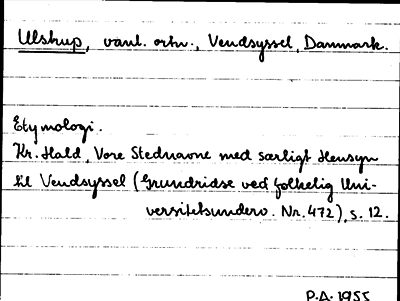 Ulstrup, vanl. ortn., Vendsyssel, Danmark.
Etymologi.
Kr. Hald, Vore Stednavne med særligt Hensyn
til Vendsyssel (Grundridse ved folkelig Uni-
versitetsunderv. Nr. 472), s. 12.
P.A. 1955